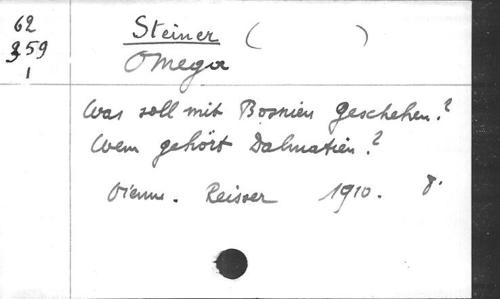 62
359
1
Steiner ( )
Omega
Was soll mit Bosnien geschehen?
Wem gehört Dalmatien?
Vienne. Reisser 1910. 8°.